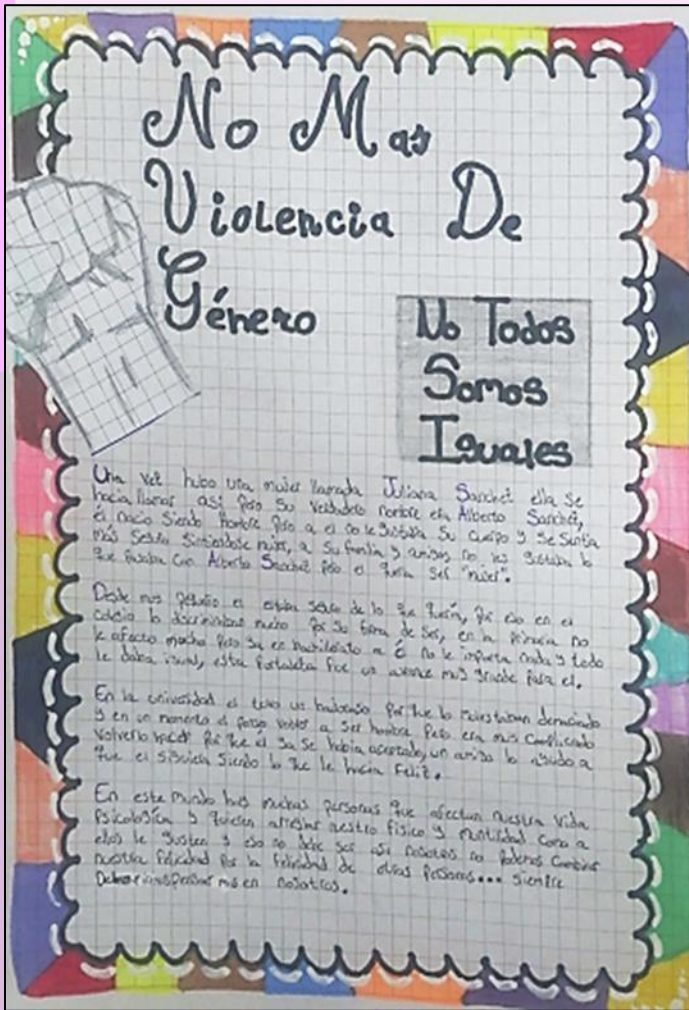 No Mas
Violencia De
Género
No Todos
Somos
Iguales
Una vez hubo una mujer llamada Juliana Sanchez ella se
hacia llamar así pero su verdadero nombre era Alberto Sanchez,
él nacio siendo hombre pero a el no le gustaba su cuerpo y se sentia
más seguro sintiendose mujer, a su familia y amigos no les gustaba lo
que pasaba con Alberto Sanchez pero el queria ser "mujer".
Desde muy pequeño el estaba seguro de lo que queria, por eso en el
colegio lo discriminaban mucho por su forma de ser, en la primaria no
le afecto mucho pero ya en bachillerato a él no le importa nada y todo
le daba igual, esta fortaleza fue un avance muy grande para el.
En la universidad el tuvo un por que lo molestaban demasiado
y en un momento el penso volver a ser hombre pero era muy complicado
volverlo hacer por que él ya se habia acertado, un amigo lo ayudo a
que el siguiera siendo lo que le hacia Feliz.
En este mundo hay muchas personas que afectan nuestra vida
psicologica y quieren arreglar nestro fisico y como a
ellos le gusten y eso no debe ser asi nosotros no podemos cambiar
nuestra felicidad por la felicidad de otras personas... siempre
Deberiamos pensar mas en nosotros.